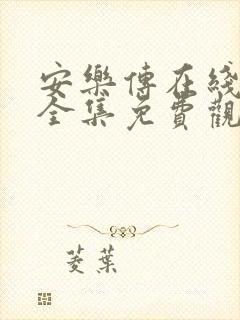 安樂傳在綫
全集免費觀
菱葉